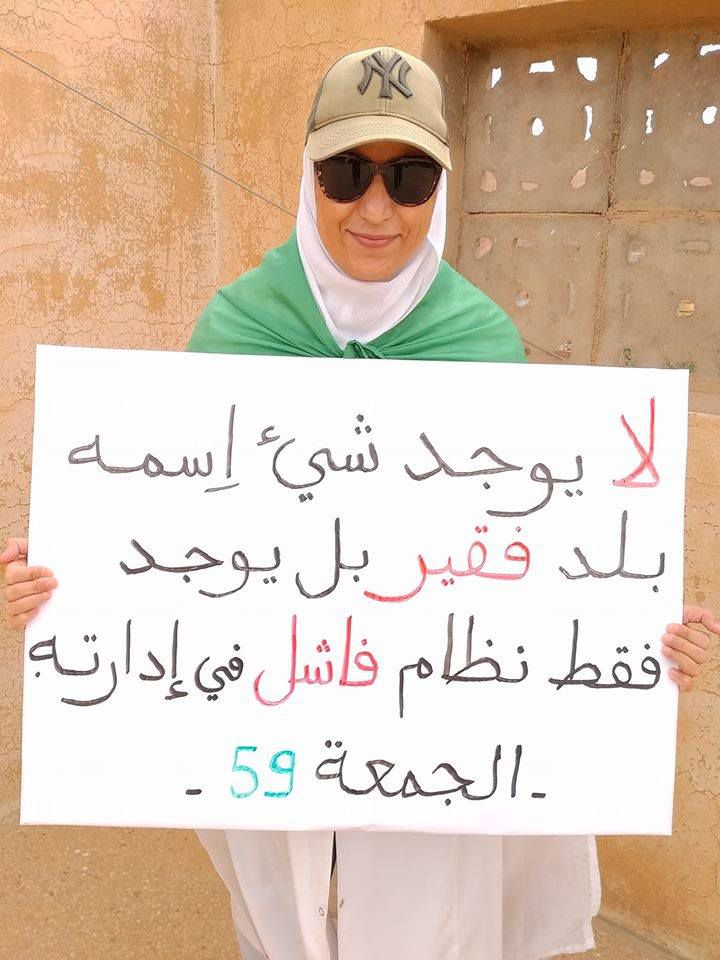 NY
لا يوجد شيئ إسمه
بلد فقير بل يوجد
فقط نظام فاشل في إدارته
- الجمعة 59 -